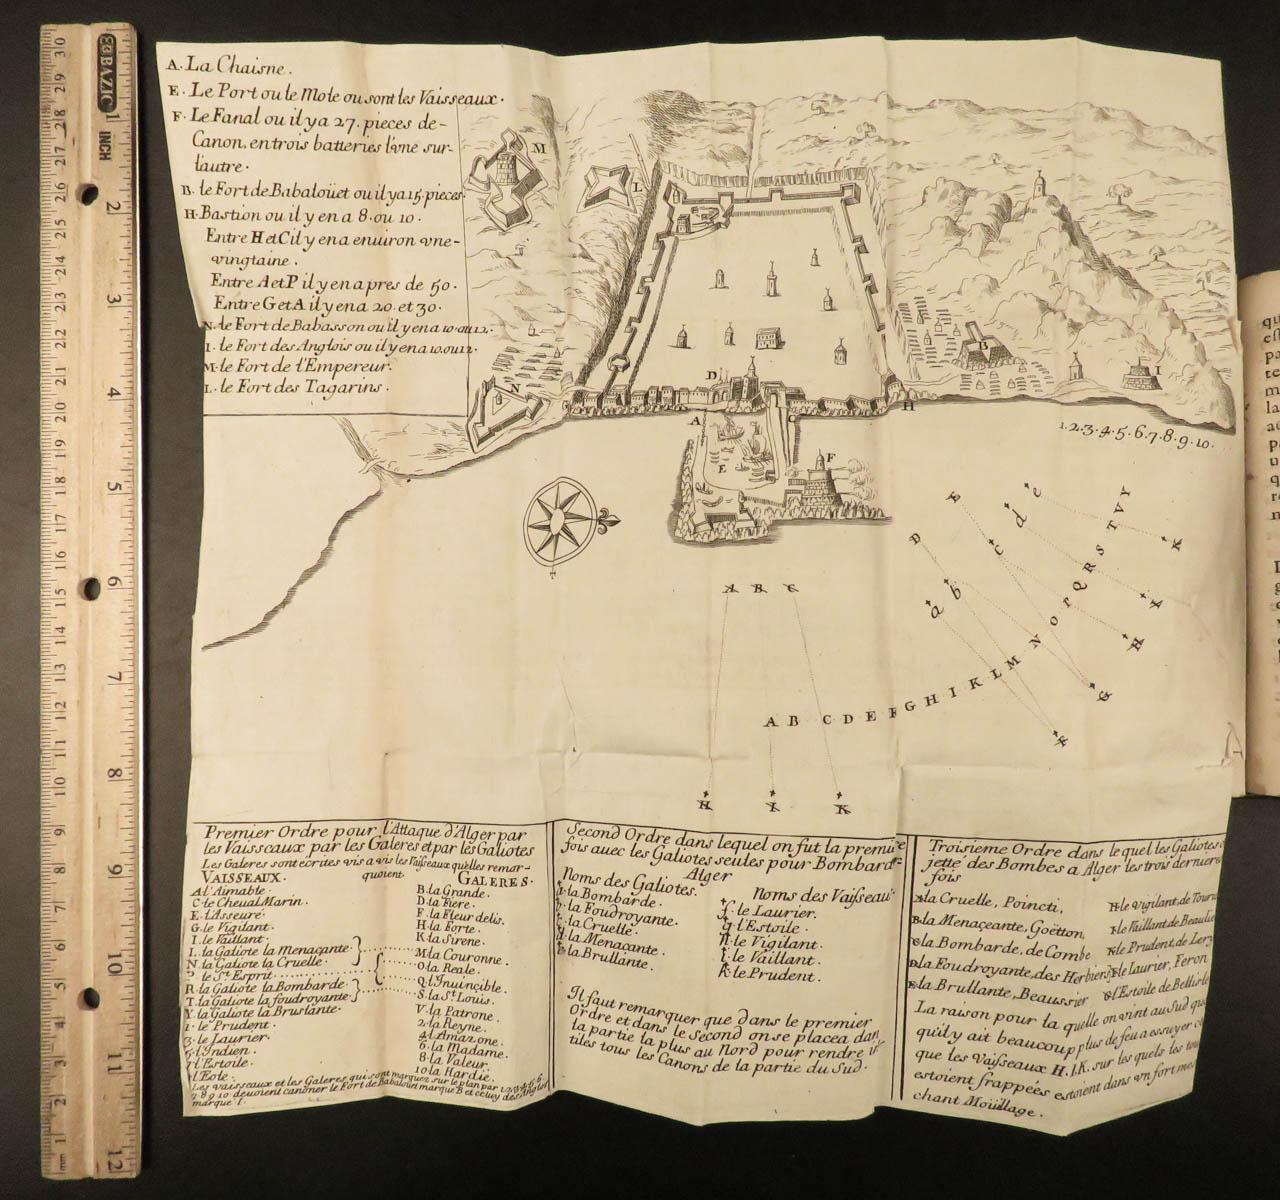 A. La Chaisne.
E. Le Port ou le Mole ou sont les Vaisseaux.
F. Le Fanal ou il y a 27. pieces de-
Canon, en trois batteries l'vne sur-
l'autre.
B. le Fort de Babaloüet ou il y a 15. pieces.
H. Bastion ou il y en a 8. ou 10.
Entre H et C il y en a enuiron vne-
vingtaine.
Entre A et P il y en a pres de 50.
Entre G et A il y en a 20. et 30.
N. le Fort de Babasson ou il y en a 10. ou 12.
I. le Fort des Anglois ou il y en a 10. ou 12.
M. le Fort de l'Empereur.
L. le Fort des Tagarins.
M
L
N
D
A
E
F
C
H
B
I
1.2.3.4.5.6.7.8.9.10.
A B C
H I K
A B C D E F G H I K L M N O P Q R S T V Y
a b c d e
D E
F G H I K
Premier Ordre pour l'Attaque d'Alger par
les Vaisseaux par les Galeres et par les Galiotes
Les Galeres sont écrites vis a vis les Vaisseaux qu'elles remor-
quoient
VAISSEAUX.
A l'Aimable.
C le Cheual Marin.
E l'Asseuré.
G le Vigilant.
I le Vaillant.
L la Galiote la Menaçante
N la Galiote la Cruelle
P le St. Esprit
R la Galiote la Bombarde
T la Galiote la foudroyante
Y la Galiote la Bruslante.
1. le Prudent.
3. le Laurier.
5. l'Indien.
7 l'Estoile.
l'Eole.
GALERES.
B. la Grande.
D. la Fiere.
F. la Fleur delis.
H. la Forte.
K. la Sirene.
M. la Couronne.
O. la Reale.
Q. l'Inuincible.
S. la St. Louis.
V. la Patrone.
2. la Reyne.
4. l'Amazone.
6. la Madame.
8. la Valeur.
10. la Hardie.
Les vaisseaux et les Galeres qui sont marquez sur le plan par 1.2.3.4.5.6.
7.8.9.10 deuoient canoner le Fort de Babaloüet marque B et celuy des Anglois
marque I.
Second Ordre dans lequel on fut la premiere
fois auec les Galiotes seules pour Bombarder
Alger
Noms des Galiotes.
la Bombarde.
la Foudroyante.
la Cruelle.
la Menacante.
la Brullante.
Noms des Vaisseau
f. le Laurier.
g. l'Estoile.
h. le Vigilant.
i. le Vaillant.
k. le Prudent.
Il faut remarquer que dans le premier
Ordre et dans le Second on se placea dans
la partie la plus au Nord pour rendre in-
tiles tous les Canons de la partie du Sud.
Troisieme Ordre dans le quel les Galiotes
jetté des Bombes a Alger les trois dernieres
fois
A. la Cruelle, Poincti,
B. la Menaceante, Goëtton,
C. la Bombarde, de Combe
D. la Foudroyante, des Herbiers
E. la Brullante, Beaussier
le Vigilant, de Tourv
le Vaillant, de Beaulie
le Prudent, de Lery
F. le Laurier, Feron
G. l'Estoile de Bellisle
La raison pour la quelle on vint au Sud quo
quil y ait beaucoup plus de feu a essuyer c
que les Vaisseaux H.I.K. sur les quels les
estoient frappées estoient dans vn fort me
chant Moüillage.
BAZIC
INCH
1 2 3 4 5 6 7 8 9 10 11 12
mm 1 2 3 4 5 6 7 8 9 10 11 12 13 14 15 16 17 18 19 20 21 22 23 24 25 26 27 28 29 30